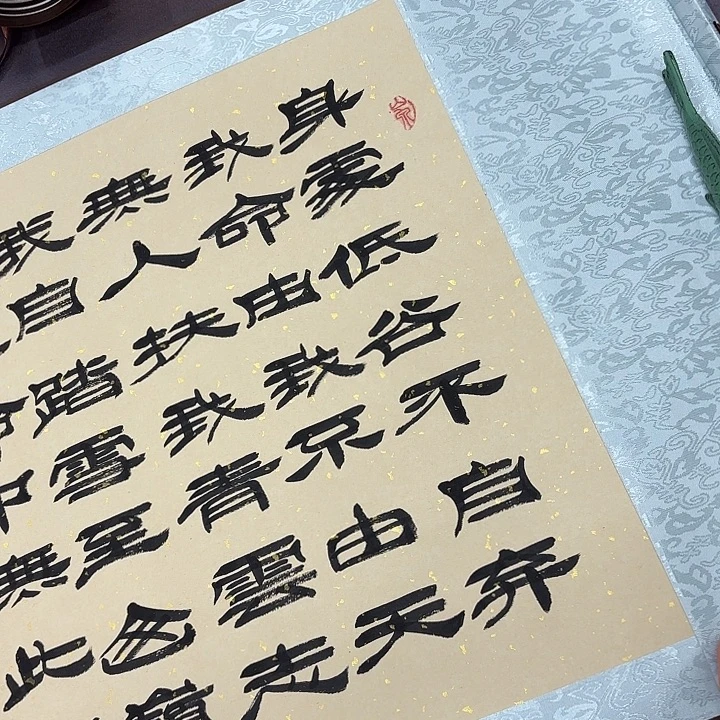 身處低谷不自弃
我命由我不由天
無人扶我青雲志
我自踏雪至山巔
命中無此